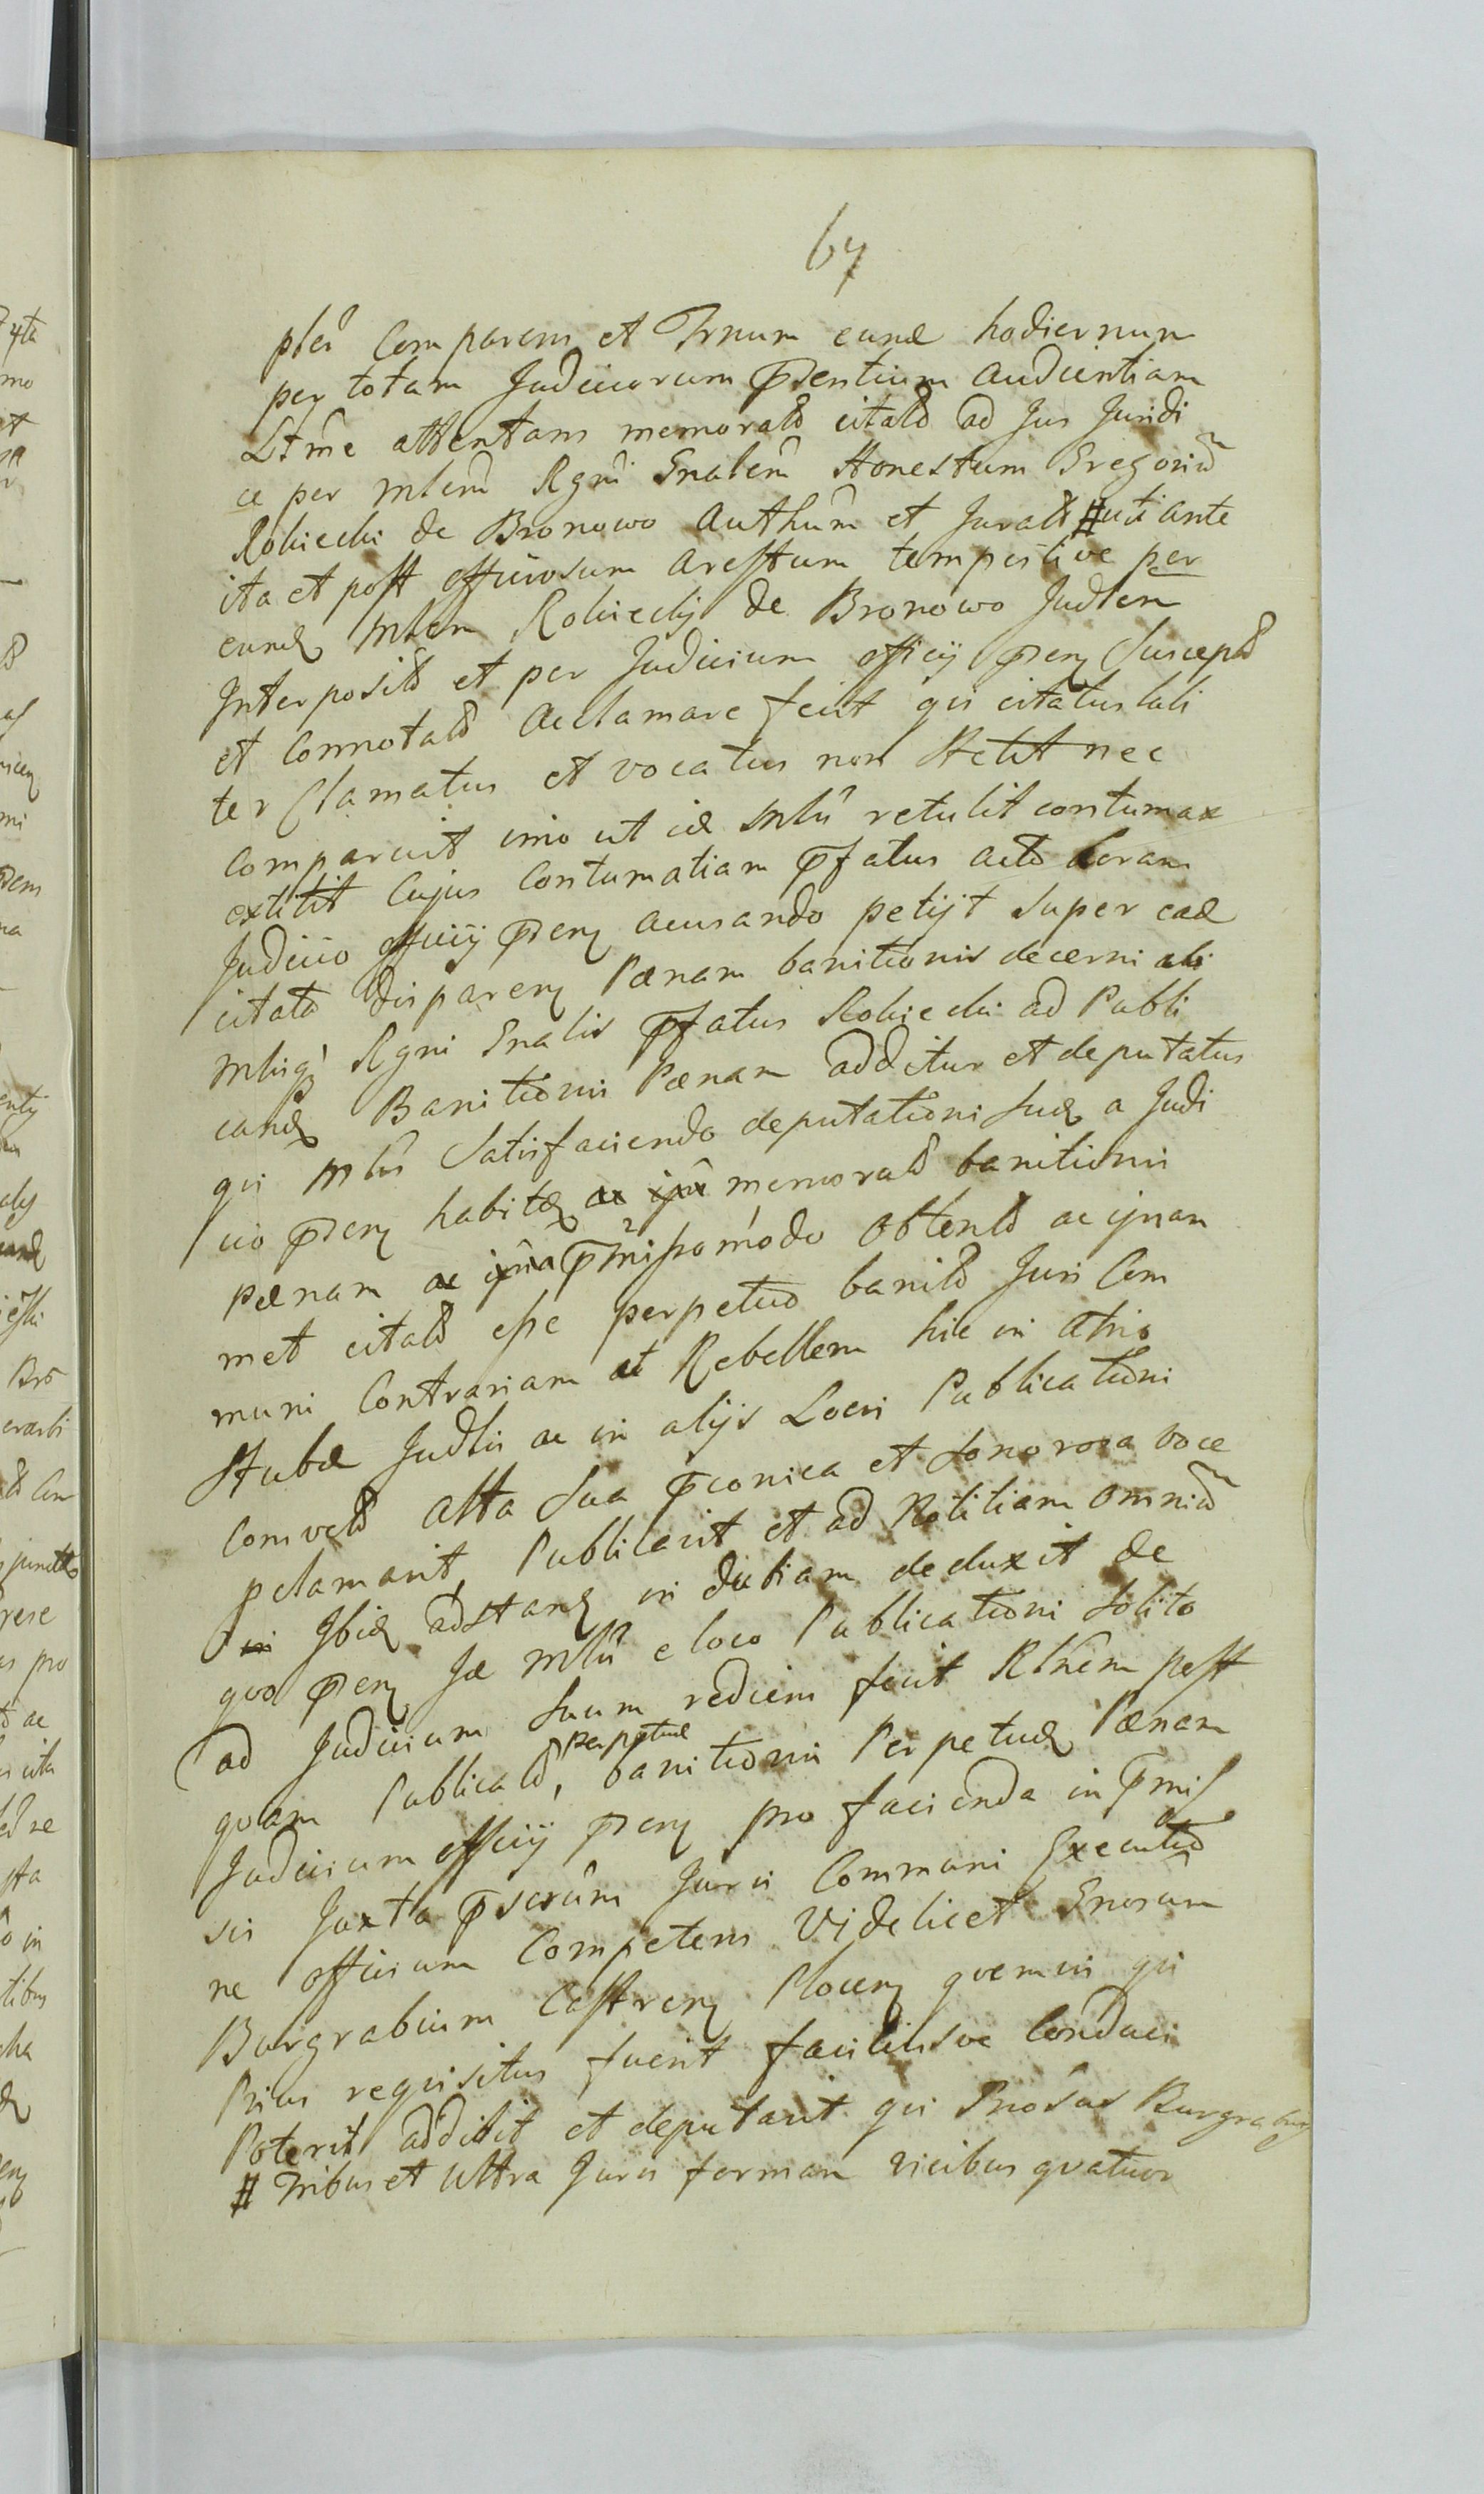 67
pler Comparens et Trnum eund hodiernum
per totam Judiciorum pdentium audientiam
Ltme attentans memoratd citatd ad Jus Juridi
ce per mlem Rgni Gnalem Honestum Gregoriu
Robiecki de Bronowo Authum et Juratd # uti ante
ita et post officiosum arestum tempestive per
eundz Mlem Robieckij de Bronowo Judlem
Interpositd et per Judicium officij pdenz Susceptd
et Connotatd acclamare fecit qui citatus tali
ter Clamatus et vocatus non stetit nec
comparuit imo ut id Mlis retulit contumax
extitit Cujus Contumatiam pfatus acto Coram
Judicio officij pdenz acusando petijt super ead
citato disparenz Pænam banitionis decerni
mlisq Rgni Gnalis pfatus Robiecki ad Publi
candz Banitionis Pænam additur et deputatus
qui Mlis Satisfaciendo deputationi suæ a Judi
cio pdenz habitæ memoratd banitionis
pænam ac pmissomodo obtentd ac ipnam
met citatd esse perpetuo banitd Juri Com
muni Contrariam et Rebellem hic in atrio
stubæ Judlis ac in alijs Locis Publicationi
Convetd alta sua pconica et sonorosa voce
pclamavit, Publicavit et ad Notitiam omniu
Ibid adstanz in dubiam deduxit de
quo pdenz Id Mlis e loco Publicationi solito
ad Judicium suum rediens fecit Rlnem post
quam Publicatd, perpetuæ banitionis Perpetuæ Pænam
Judicium officij pdenz pro facienda in pmis
sis Juxta pscrum Juris Communi Executio
ne officium Competens Videlicet Gnosum
Burgrabium Castrenz Plocenz quemvis qui
Prius requisitus fuerit faciliusve Conduci
Poterit addidit et deputavit qui Gnosus Burgrabius
# Tribus et ultra Juris formam vicibus quatuor